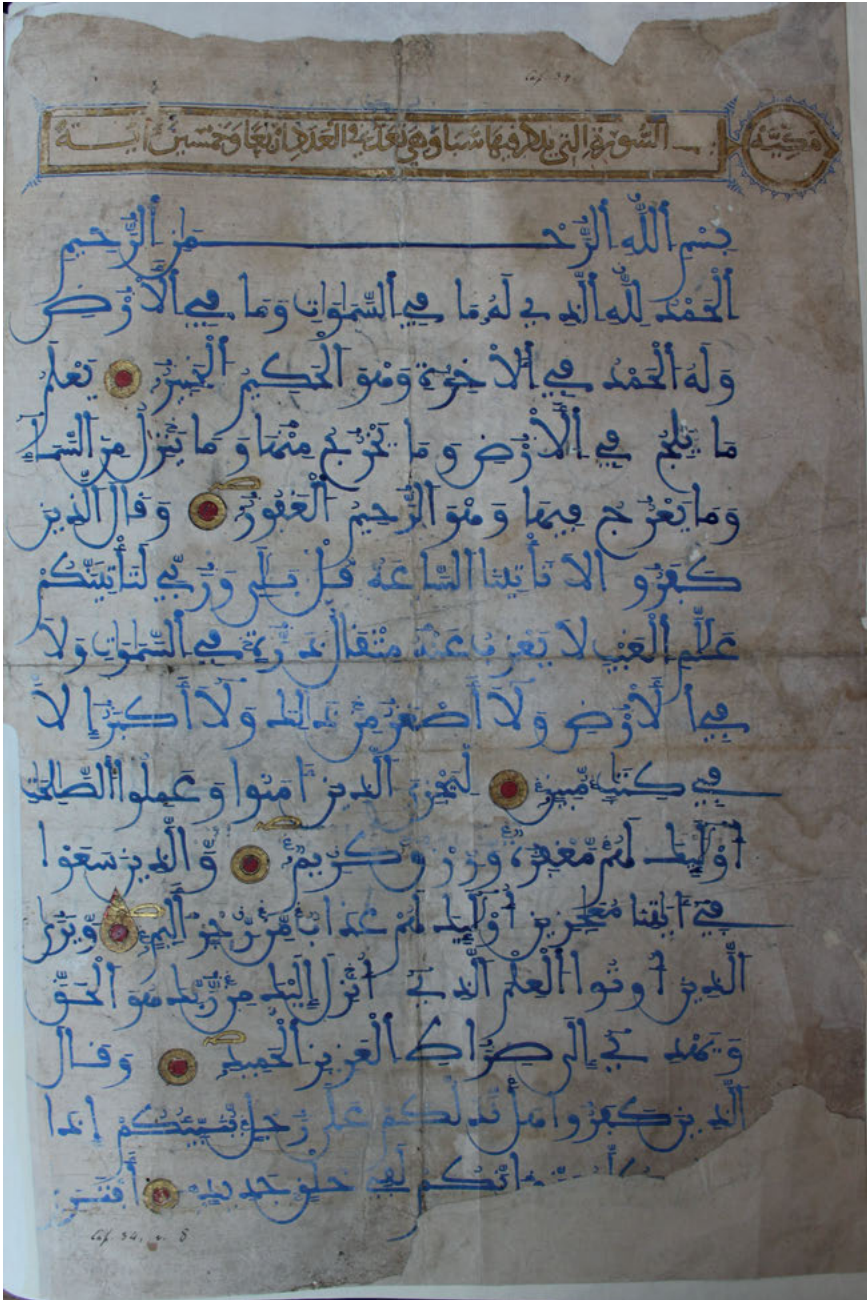 Cap. 34.
السورة التي يذكر فيها سبا وهي والعدد اربعا وخمسين اية
مكية
بسم الله الرحمن الرحيم
الحمد لله الذي له ما في السموات وما في الأرض
وله الحمد في الأخرة وهو الحكيم الخبير يعلم
ما يلج في الأرض وما يخرج منها وما ينزل من السماء
وما يعرج فيها وهو الرحيم الغفور وقال الذين
كفروا لا تأتينا الساعة قل بلى وربي لتأتينكم
علم الغيب لا يعزب عنه مثقال ذرة في السموات ولا
في الأرض ولا أصغر من ذلك ولا أكبر إلا
في كتب مبين ليجزي الذين ءامنوا وعملوا الصلحت
أولئك لهم مغفرة ورزق كريم والذين سعوا
في ءايتنا معجزين أولئك لهم عذاب من رجز أليم ويرى
الذين أوتوا العلم الذي أنزل إليك من ربك هو الحق
ويهدي إلى صراط العزيز الحميد وقال
الذين كفروا هل ندلكم على رجل ينبئكم إذا
إنكم لفي خلق جديد
Cap. 34. v. 8